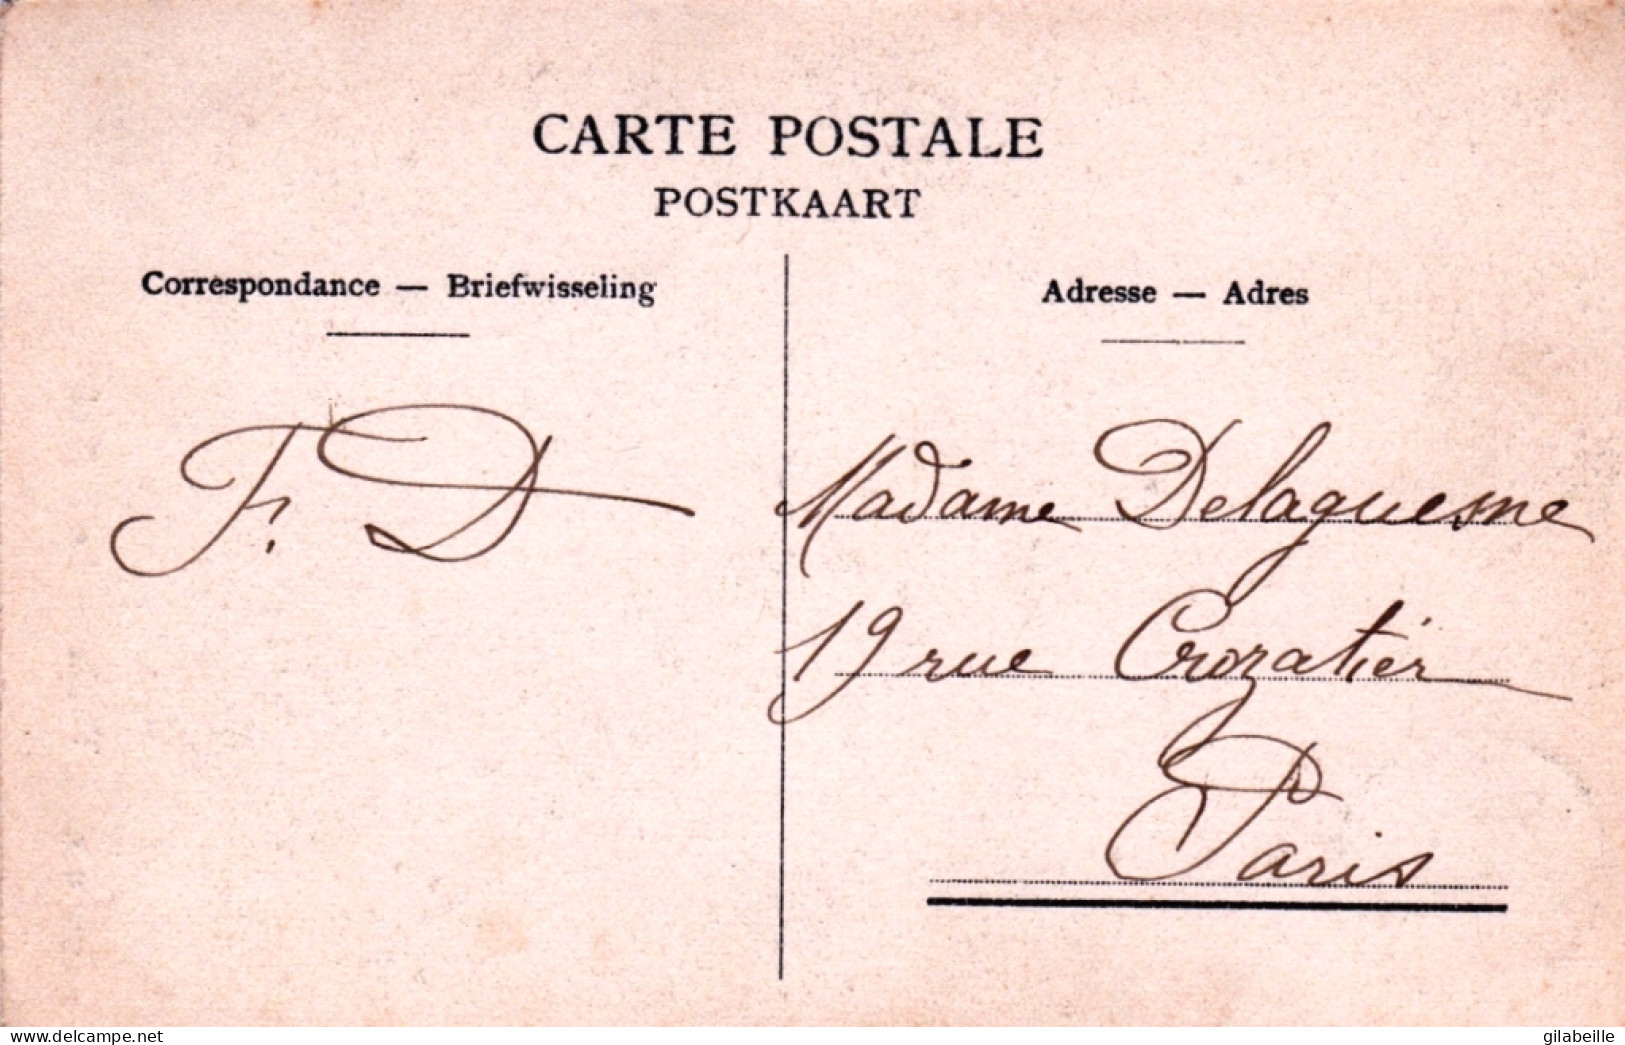 CARTE POSTALE
POSTKAART
Correspondance — Briefwisseling
F. D
Adresse — Adres
Madame Delaguesne
19 rue Crozatier
Paris
delcampe.net
gilabeille